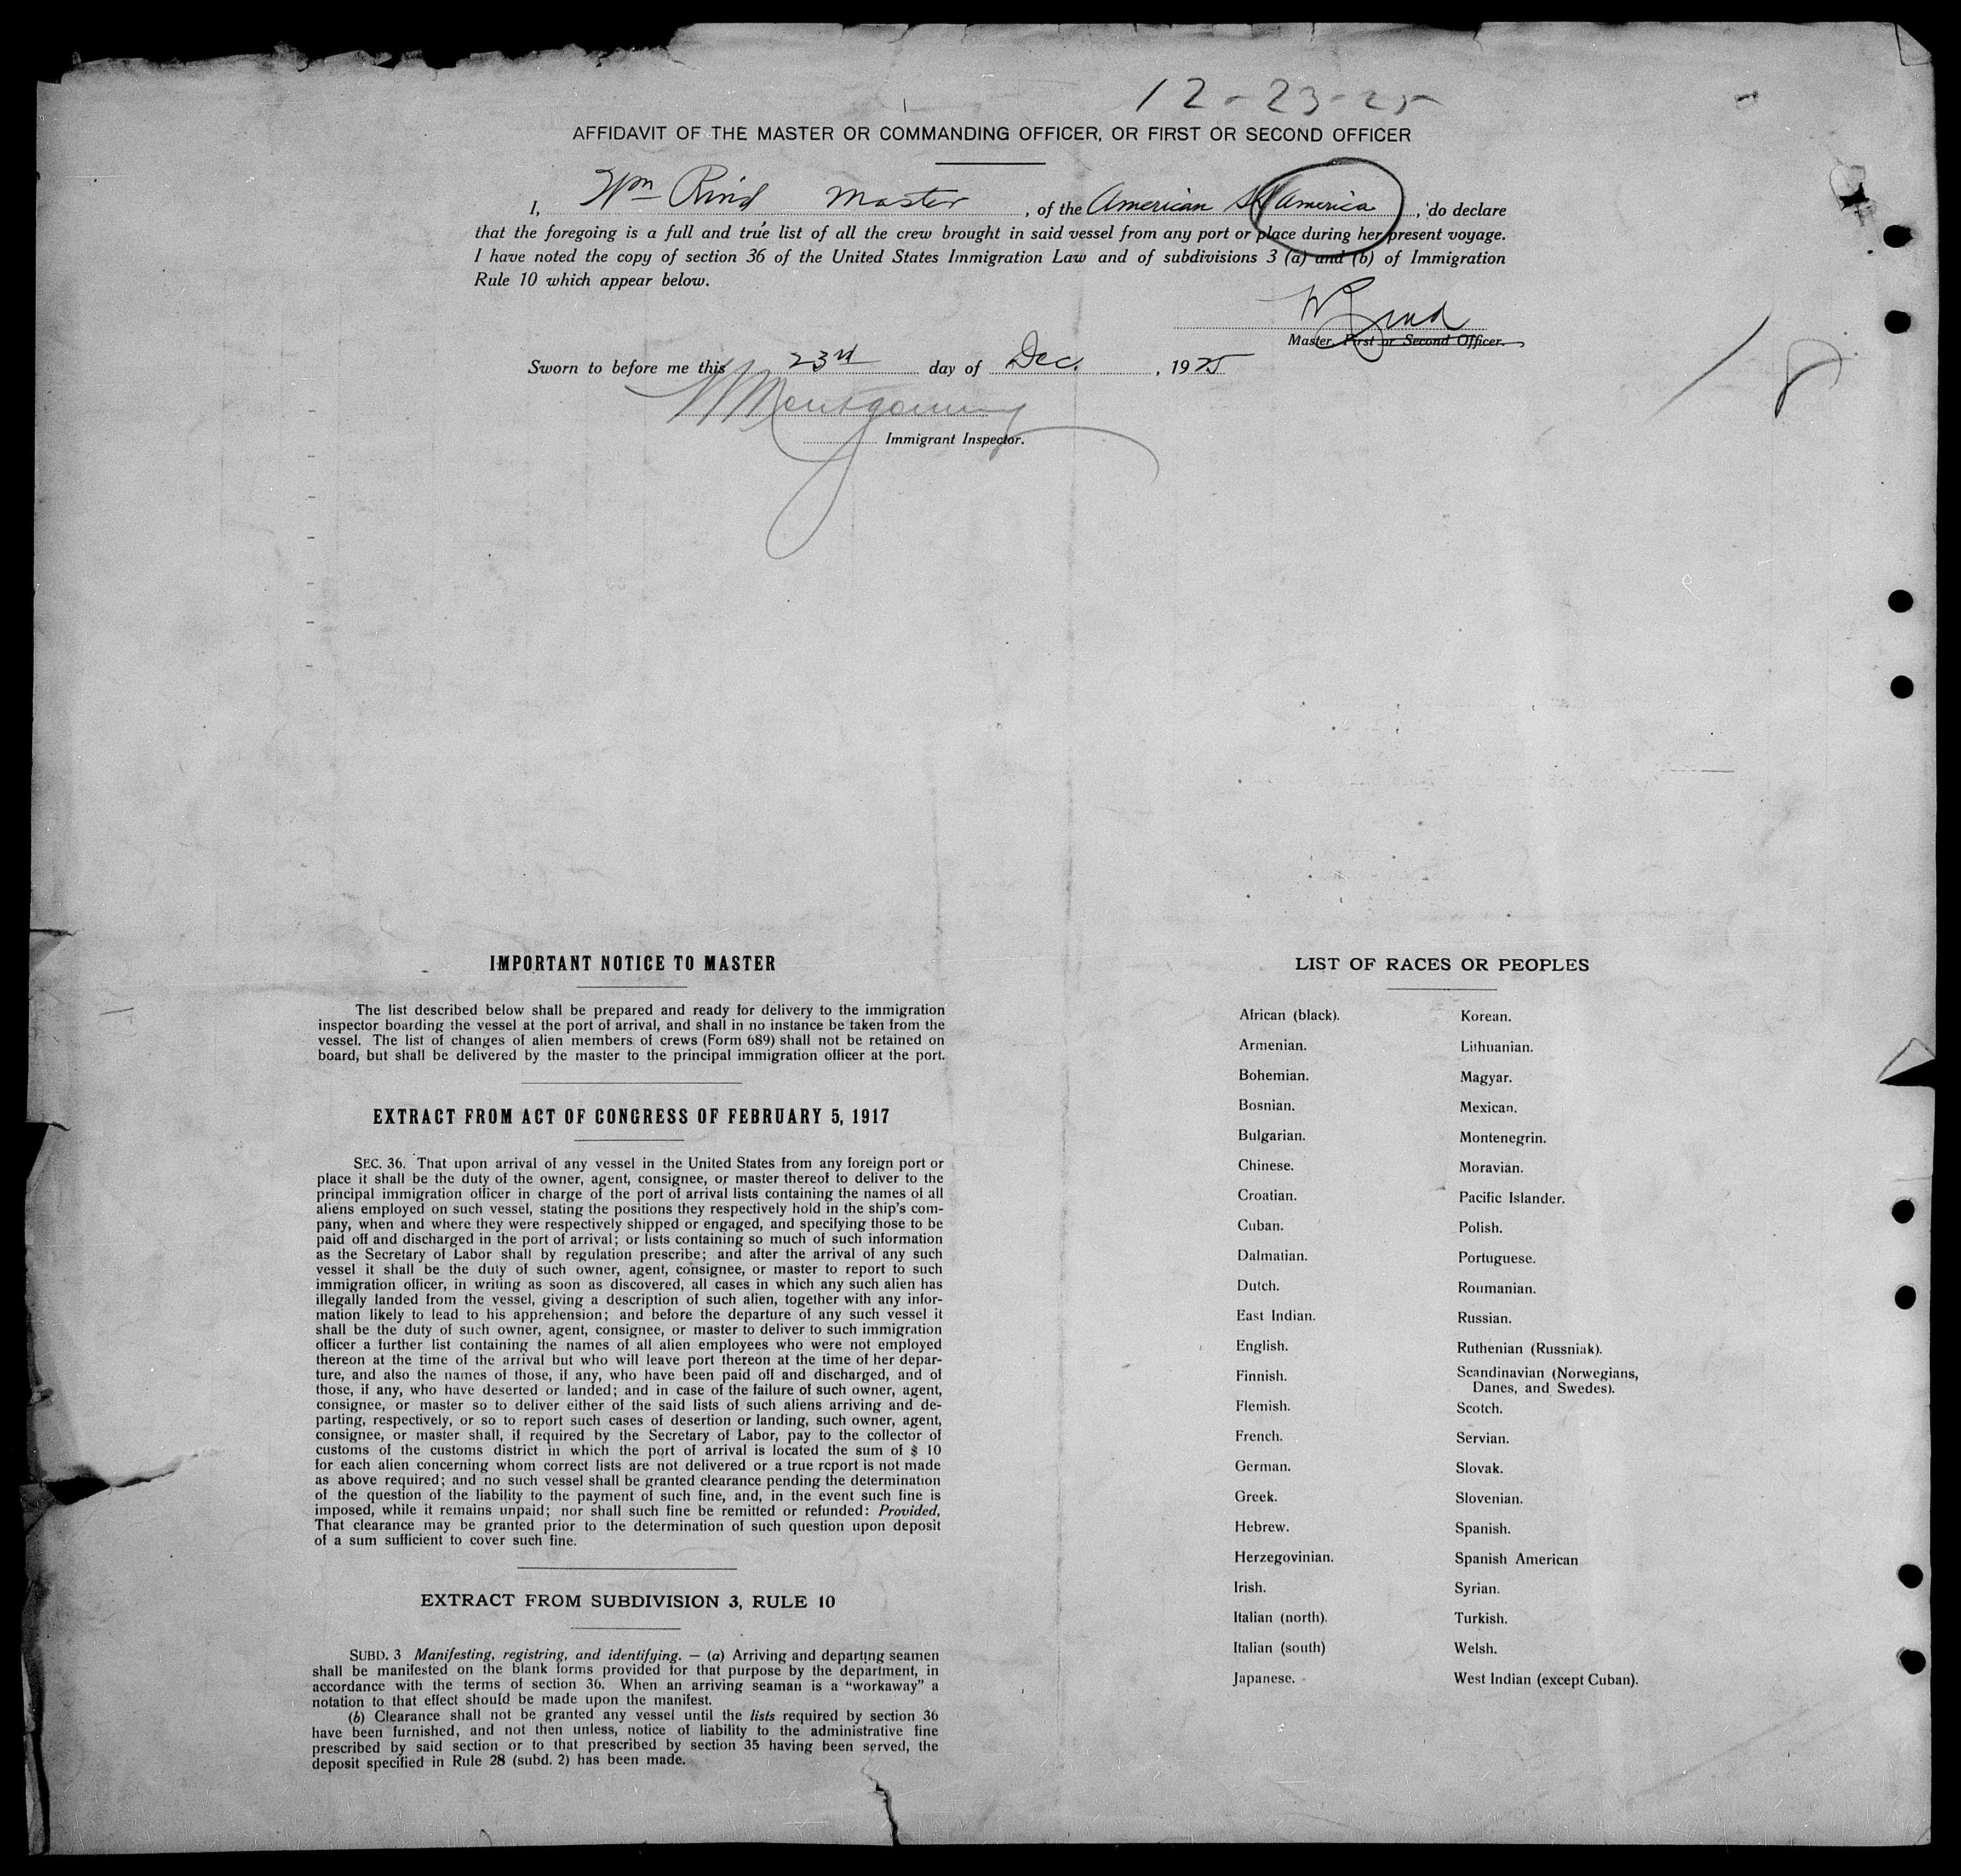 12-23-25
AFFIDAVIT OF THE MASTER OR COMMANDING OFFICER, OR FIRST OR SECOND OFFICER
I, Wm Rind Master, of the American SS America, do declare
that the foregoing is a full and true list of all the crew brought in said vessel from any port or place during her present voyage.
I have noted the copy of section 36 of the United States Immigration Law and of subdivisions 3 (a) and (b) of Immigration
Rule 10 which appear below.
W Rind
Master, First or Second Officer.
Sworn to before me this 23rd day of Dec., 1925
Montgomery
Immigrant Inspector.
IMPORTANT NOTICE TO MASTER
The list described below shall be prepared and ready for delivery to the immigration
inspector boarding the vessel at the port of arrival, and shall in no instance be taken from the
vessel. The list of changes of alien members of crews (Form 689) shall not be retained on
board, but shall be delivered by the master to the principal immigration officer at the port.
EXTRACT FROM ACT OF CONGRESS OF FEBRUARY 5, 1917
SEC. 36. That upon arrival of any vessel in the United States from any foreign port or
place it shall be the duty of the owner, agent, consignee, or master thereof to deliver to the
principal immigration officer in charge of the port of arrival lists containing the names of all
aliens employed on such vessel, stating the positions they respectively hold in the ship's com-
pany, when and where they were respectively shipped or engaged, and specifying those to be
paid off and discharged in the port of arrival; or lists containing so much of such information
as the Secretary of Labor shall by regulation prescribe; and after the arrival of any such
vessel it shall be the duty of such owner, agent, consignee, or master to report to such
immigration officer, in writing as soon as discovered, all cases in which any such alien has
illegally landed from the vessel, giving a description of such alien, together with any infor-
mation likely to lead to his apprehension; and before the departure of any such vessel it
shall be the duty of such owner, agent, consignee, or master to deliver to such immigration
officer a further list containing the names of all alien employees who were not employed
thereon at the time of the arrival but who will leave port thereon at the time of her depar-
ture, and also the names of those, if any, who have been paid off and discharged, and of
those, if any, who have deserted or landed; and in case of the failure of such owner, agent,
consignee, or master so to deliver either of the said lists of such aliens arriving and de-
parting, respectively, or so to report such cases of desertion or landing, such owner, agent,
consignee, or master shall, if required by the Secretary of Labor, pay to the collector of
customs of the customs district in which the port of arrival is located the sum of $ 10
for each alien concerning whom correct lists are not delivered or a true report is not made
as above required; and no such vessel shall be granted clearance pending the determination
of the question of the liability to the payment of such fine, and, in the event such fine is
imposed, while it remains unpaid; nor shall such fine be remitted or refunded: Provided,
That clearance may be granted prior to the determination of such question upon deposit
of a sum sufficient to cover such fine.
EXTRACT FROM SUBDIVISION 3, RULE 10
SUBD. 3 Manifesting, registring, and identifying. — (a) Arriving and departing seamen
shall be manifested on the blank forms provided for that purpose by the department, in
accordance with the terms of section 36. When an arriving seaman is a "workaway" a
notation to that effect should be made upon the manifest.
(b) Clearance shall not be granted any vessel until the lists required by section 36
have been furnished, and not then unless, notice of liability to the administrative fine
prescribed by said section or to that prescribed by section 35 having been served, the
deposit specified in Rule 28 (subd. 2) has been made.
LIST OF RACES OR PEOPLES
African (black).
Armenian.
Bohemian.
Bosnian.
Bulgarian.
Chinese.
Croatian.
Cuban.
Dalmatian.
Dutch.
East Indian.
English.
Finnish.
Flemish.
French.
German.
Greek.
Hebrew.
Herzegovinian.
Irish.
Italian (north).
Italian (south)
Japanese.
Korean.
Lithuanian.
Magyar.
Mexican.
Montenegrin.
Moravian.
Pacific Islander.
Polish.
Portuguese.
Roumanian.
Russian.
Ruthenian (Russniak).
Scandinavian (Norwegians,
Danes, and Swedes).
Scotch.
Servian.
Slovak.
Slovenian.
Spanish.
Spanish American
Syrian.
Turkish.
Welsh.
West Indian (except Cuban).